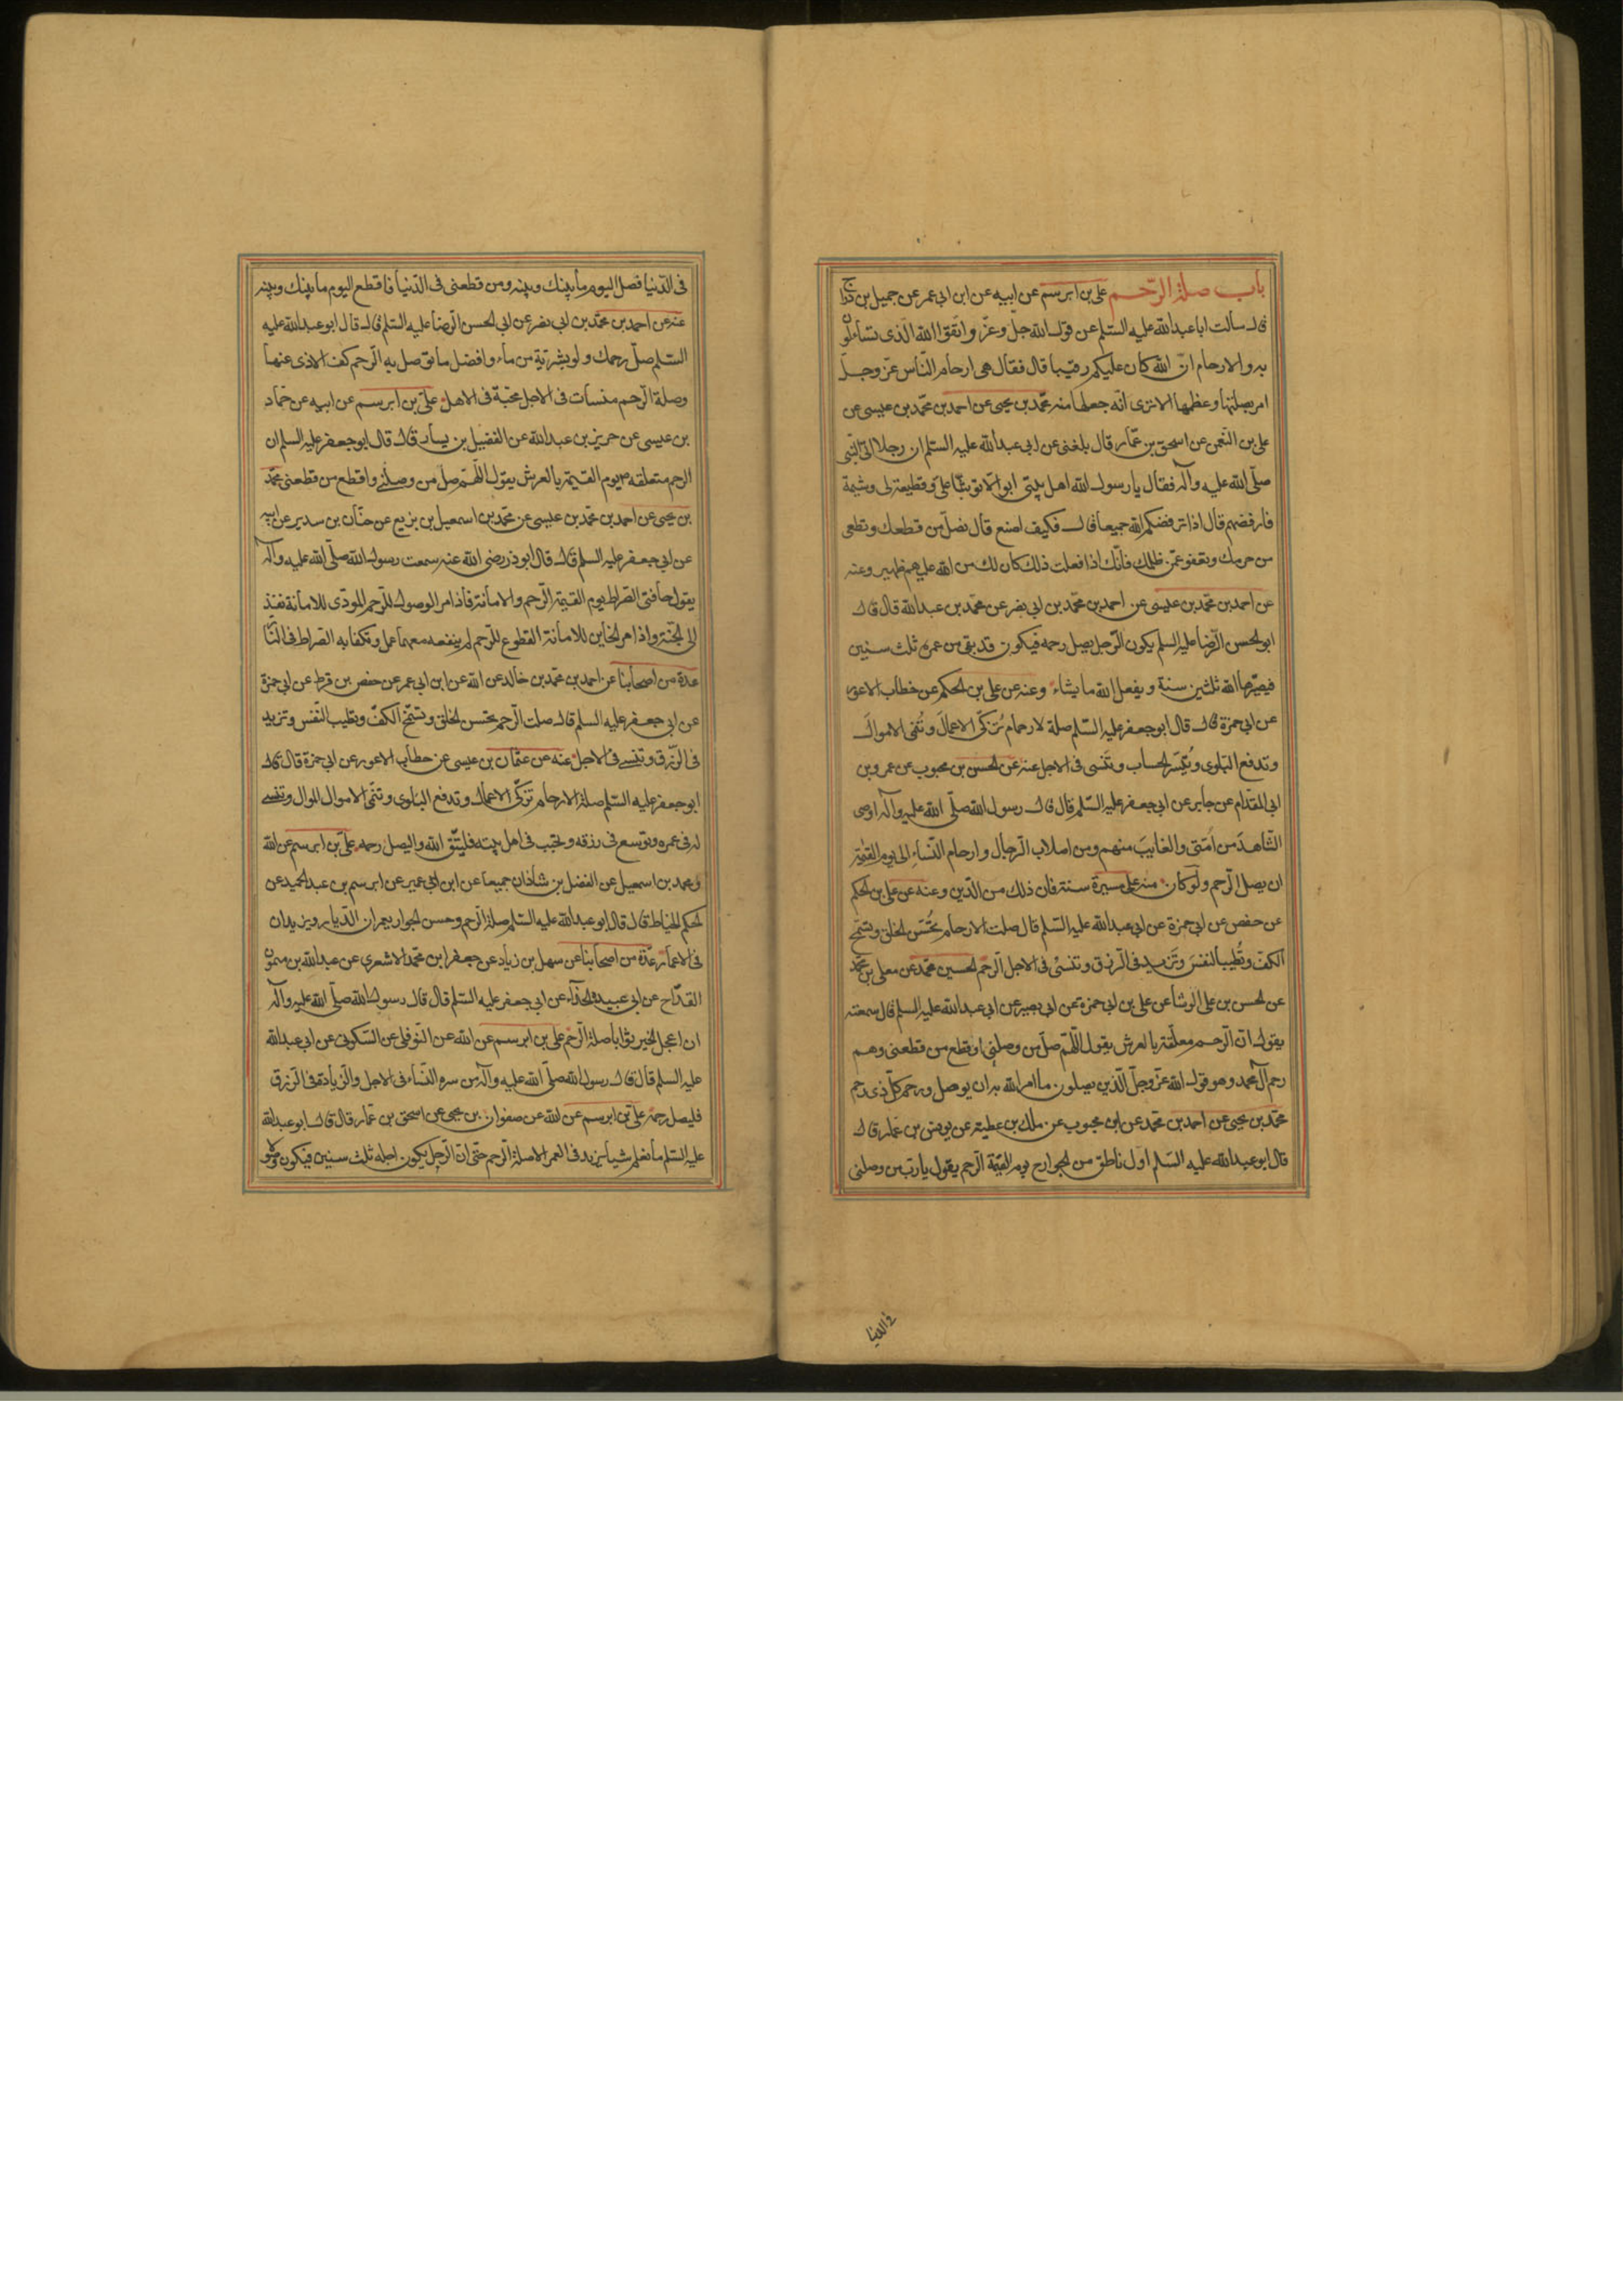 باب صلة الرّحم علي بن ابرهيم عن ابيه عن ابن ابي عمر عن جميل بن درّاج
قال سألت ابا عبد الله عليه السّلم عن قول الله جلّ وعزّ واتّقوا الله الّذى تسّاءلون
به والارحام انّ الله كان عليكم رقيبا قال فقال هى ارحام النّاس عزّ وجلّ
امر بصلتها وعظمها الا ترى انّه جعلها منه محمّد بن يحيى عن احمد بن محمّد بن عيسى عن
على بن النّعمن عن اسحق بن عمّار قال بلغنى عن ابى عبد الله عليه السّلم ان رجلا اتى النّبى
صلّى الله عليه وآله فقال يا رسول الله اهل بيتى ابوا الا توثّبا علىّ وقطيعة لى وشيمة
فارفضهم قال اذا ترفضكم الله جميعا قال فكيف اصنع قال تصل من قطعك وتعطى
من حرمك وتعفو عمّن ظلمك فانّك اذا فعلت ذلك كان لك من الله عليهم ظهير وعنه
عن احمد بن محمّد بن عيسى عن احمد بن محمّد بن ابى نصر عن محمّد بن عبد الله قال قال
ابو الحسن الرّضا عليه السلم يكون الرّجل يصل رحمه فيكون قد بقى من عمره ثلث سنين
فيصيّرها الله ثلثين سنة ويفعل الله ما يشاء وعنه عن على بن الحكم عن خطاب الاعور
عن ابى حمزة قال قال ابو جعفر عليه السّلم صلة لارحام تُزكّى الاعمالَ وتُنمى الاموالَ
وتدفع البلوى وتُيَسّر الحساب وتَنسى فى الاجل عنه عن الحسن بن محبوب عن عمرو بن
ابى المقدام عن جابر عن ابى جعفر عليه السّلم قال قال رسول الله صلّى الله عليه وآله اوصى
الشّاهدَ من اُمّتى والغايبَ منهم ومن اصلاب الرّجال وارحام النّساء الى يوم القيمة
ان يصل الرّحم ولو كان منه على مسيرة سنة فان ذلك من الدّين وعنه عن على بن الحكم
عن حفص عن ابى حمزة عن ابى عبد الله عليه السّلم قال صلت الارحام تُحسّن الخلق وتسمّح
الكفّ وتُطيب النفسَ وتَزيد فى الرّزق وتنسئ فى الاجل الرّحم الحسين محمّد عن معلى بن محمّد
عن الحسن بن على الوشّا عن على بن ابى حمزة عن ابى بصير عن ابى عبد الله عليه السلم قال سمعته
يقول انّ الرّحم معلّقة بالعرش يقول اللّهمّ صل من وصلنى اوقطع من قطعنى وهم
رحم آل محمد وهو قول الله عزّ وجلّ الّذين يصلون ما امر الله به ان يوصل ورحم كلّ ذى رحم
محمّد بن يحيى عن احمد بن محمّد عن ابن محبوب عن ملك بن عطيه عن يونس بن عمار قال
قال ابو عبد الله عليه السّلم اوّل ناطق من الجوارح يوم القيمة الرّحم يقول يا ربّ من وصلنى
فى الدنيا
فى الدّنيا فصل اليوم ما بينك وبينه ومن قطعنى فى الدّنيا فاقطع اليوم ما بينك وبينه
عنه عن احمد بن محمّد بن ابى نصر عن ابى الحسن الرّضا عليه السّلم قال قال ابو عبد الله عليه
السّلم صل رحمك ولو بشربة من ماء وافضل ما توصل به الرّحم كفّ الاذى عنها
وصلة الرّحم منسات فى الاجل محبّة فى الاهل علىّ بن ابرهيم عن ابيه عن حمّاد
بن عيسى عن حريز بن عبد الله عن الفضيل بن يسار قال قال ابو جعفر عليه السلم ان
الرحم متعلقه يوم القيمة بالعرش يقول اللّهمّ صل من وصلنى واقطع من قطعنى محمّد
بن يحيى عن احمد بن محمّد بن عيسى عن محمّد بن اسمعيل بن بزيع عن حنّان بن سدير عن ابيه
عن ابى جعفر عليه السلم قال قال ابو ذر رضى الله عنه سمعت رسول الله صلّى الله عليه وآله
يقول حافتى الصّراط يوم القيمة الرّحم والامانة فاذا مر الوصول للرّحم المودّى للامانة نفذ
الى الجنّة واذا مر الخاين للامانة القطوع للرّحم لم ينفعه معهما عمل وتكفا به الصّراط فى النّار
عدة من اصحابنا عن احمد بن محمّد بن خالد عن الله عن ابن ابى عمر عن حفص بن قرط عن ابى حمزة
عن ابى جعفر عليه السلم قال صلت الرّحم تحسن الخلق وتسمّح الكفّ وتطيب النّفس وتزيد
فى الرّزق وتنسئ فى الاجل عنه عن عثمان بن عيسى عن خطاب الاعور عن ابى حمزة قال قال
ابو جعفر عليه السّلم صلة الارحام تزكّى الاعمال وتدفع البلوى وتنمى الاموال الموال وتنسئ
له فى عمره وتوسع فى رزقه وتحبّب فى اهل بيته فليتّق الله واليصل رحمه علىّ بن ابرهيم عن الله
ومحمد بن اسمعيل عن الفضل بن شاذان جميعا عن ابن ابى عمير عن ابرهيم بن عبد الحميد عن
الحكم الخياط قال قال ابو عبد الله عليه السّلم صلة الرّحم وحسن الجوار يعمران الدّيار ويزيدان
فى الاعمار عدّة من اصحابنا عن سهل بن زياد عن جعفر ابن محمّد الاشعرى عن عبد الله بن ميمون
القدّاح عن ابى عبيدة الحذّاء عن ابى جعفر عليه السّلم قال قال رسول الله صلّى الله عليه وآله
ان اعجل الخير ثوابا صلة الرّحم على بن ابرهيم عن الله عن النّوفلى عن السّكونى عن ابى عبد الله
عليه السلم قال قال رسول الله صلّى الله عليه وآله من سره النّساء فى الاجل والزّيادة فى الرّزق
فليصل رحمه على بن ابرهيم عن الله عن صفوان بن يحيى عن اسحق بن عمّار قال قال ابو عبد الله
عليه السّلم ما نعلم شيأ يزيد فى العمر الا صلة الرّحم حتّى انّ الرّجل يكون اجله ثلث سنين فيكون وصولا